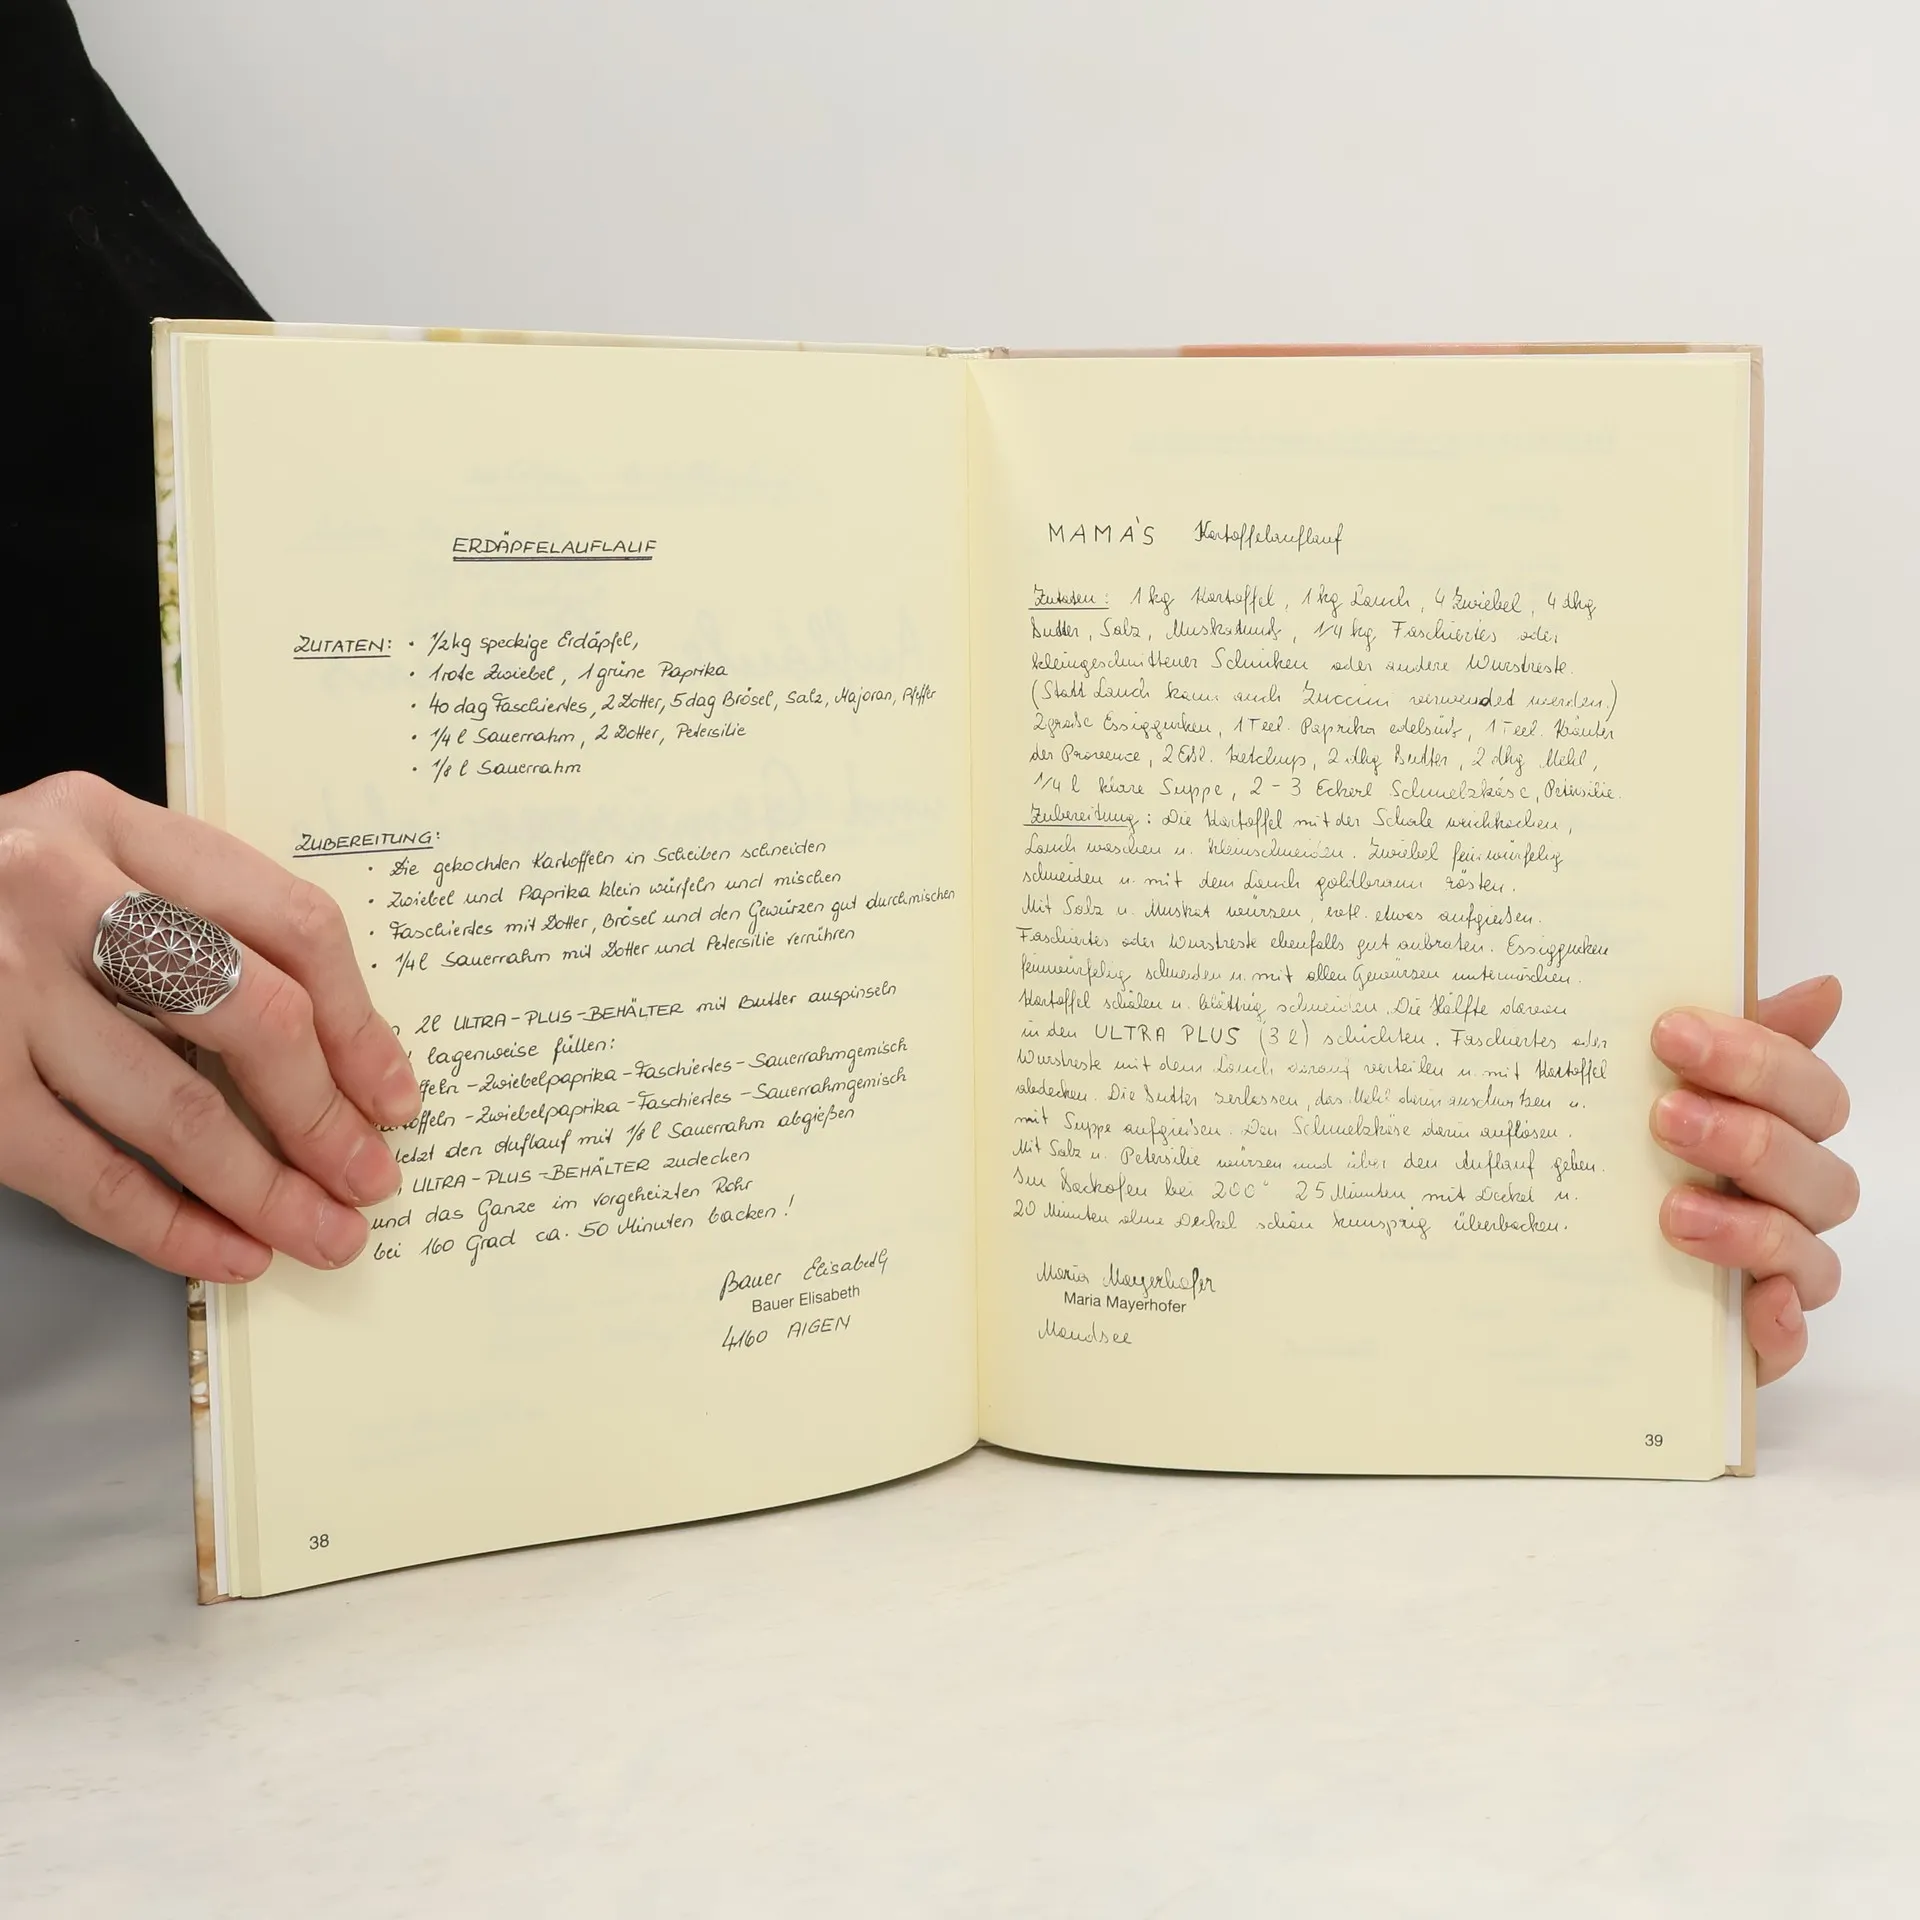 ERDÄPFELAUFLAUF
ZUTATEN: • 1/2 kg speckige Erdäpfel,
• 1 rote Zwiebel, 1 grüne Paprika
• 40 dag Faschiertes, 2 Dotter, 5 dag Brösel, Salz, Majoran, Pfeffer
• 1/4 l Sauerrahm, 2 Dotter, Petersilie
• 1/8 l Sauerrahm
ZUBEREITUNG:
• Die gekochten Kartoffeln in Scheiben schneiden
• Zwiebel und Paprika klein würfeln und mischen
• Faschiertes mit Dotter, Brösel und den Gewürzen gut durchmischen
• 1/4 l Sauerrahm mit Dotter und Petersilie verrühren
2l ULTRA-PLUS-BEHÄLTER mit Butter auspinseln
lagenweise füllen:
ffeln - Zwiebelpaprika - Faschiertes - Sauerrahmgemisch
toffeln - Zwiebelpaprika - Faschiertes - Sauerrahmgemisch
letzt den Auflauf mit 1/8 l Sauerrahm abgießen
ULTRA-PLUS-BEHÄLTER zudecken
und das Ganze im vorgeheizten Rohr
bei 160 Grad ca. 50 Minuten backen!
Bauer Elisabeth
Bauer Elisabeth
4160 AIGEN
38
MAMA'S Kartoffelauflauf
Zutaten: 1 kg Kartoffel, 1 kg Lauch, 4 Zwiebel, 4 dkg
Butter, Salz, Muskatnuß, 1/4 kg Faschiertes oder
kleingeschnittener Schinken oder andere Wurstreste.
(Statt Lauch kann auch Zuccini verwendet werden.)
2 große Essiggurken, 1 Teel. Paprika edelsüß, 1 Teel. Kräuter
der Provence, 2 Eßl. Ketchup, 2 dkg Butter, 2 dkg Mehl,
1/4 l klare Suppe, 2 - 3 Eckerl Schmelzkäse, Petersilie.
Zubereitung: Die Kartoffel mit der Schale weichkochen,
Lauch waschen u. kleinschneiden. Zwiebel feinwürfelig
schneiden u. mit dem Lauch goldbraun rösten.
Mit Salz u. Muskat würzen, evtl. etwas aufgießen.
Faschiertes oder Wurstreste ebenfalls gut anbraten. Essiggurken
feinwürfelig schneiden u. mit allen Gewürzen untermischen.
Kartoffel schälen u. blättrig schneiden. Die Hälfte davon
in den ULTRA PLUS (3 l) schichten. Faschiertes oder
Wurstreste mit dem Lauch darauf verteilen u. mit Kartoffel
abdecken. Die Butter zerlassen, das Mehl darin anschwitzen u.
mit Suppe aufgießen. Den Schmelzkäse darin auflösen.
Mit Salz u. Petersilie würzen und über den Auflauf geben.
Im Backofen bei 200° 25 Minuten mit Deckel u.
20 Minuten ohne Deckel schön knusprig überbacken.
Maria Mayerhofer
Maria Mayerhofer
Mondsee
39